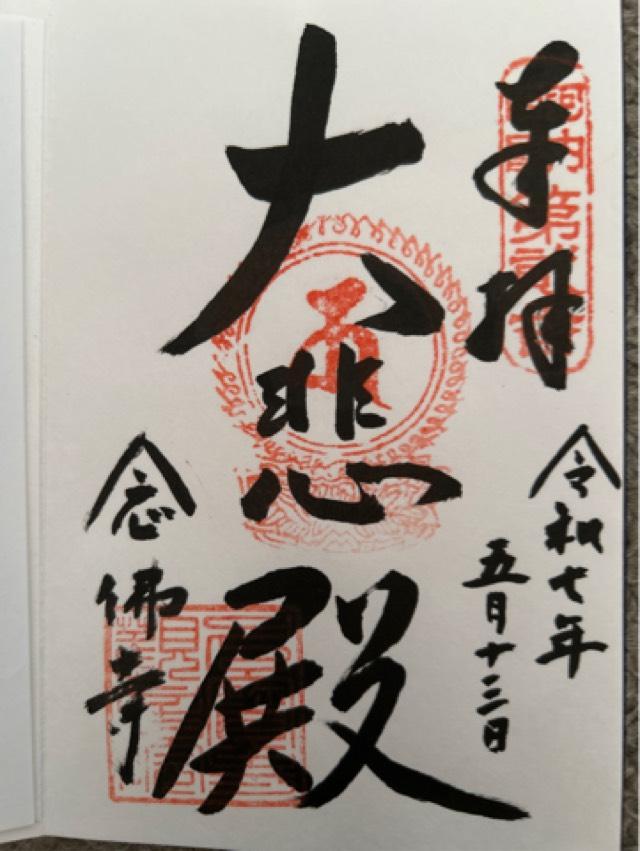 奉拝
令和七年
五月十三日
大悲殿
念佛寺